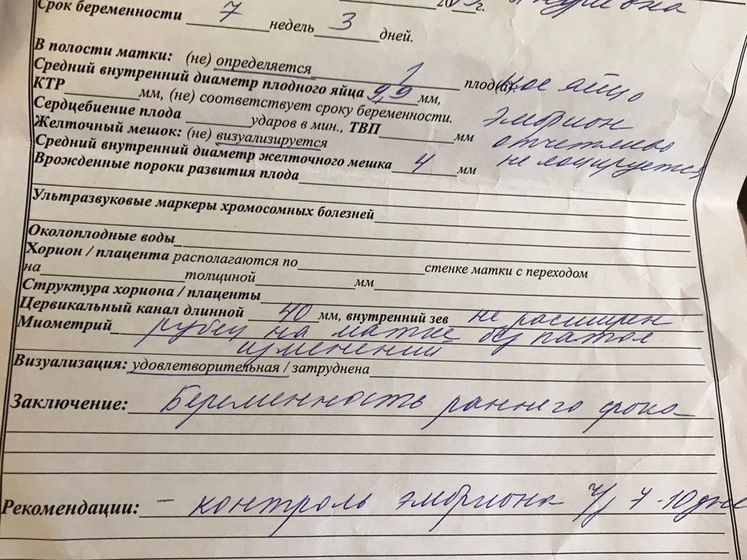 Срок беременности 7 недель 3 дней.
В полости матки: (не) определяется 1 плод(а) ное яйцо
Средний внутренний диаметр плодного яйца 9,9 мм,
КТР мм, (не) соответствует сроку беременности. эмбрион
Сердцебиение плода ударов в мин., ТВП мм отчетливо
Желточный мешок: (не) визуализируется не лоцируется
Средний внутренний диаметр желточного мешка 4 мм
Врожденные пороки развития плода
Ультразвуковые маркеры хромосомных болезней
Околоплодные воды
Хорион / плацента располагаются по стенке матки с переходом
на толщиной мм
Структура хориона / плаценты
Цервикальный канал длинной 40 мм, внутренний зев не расширен
Миометрий рубец на матке без патол.
изменений
Визуализация: удовлетворительная / затруднена
Заключение: Беременность раннего срока
Рекомендации: - контроль эмбриона ч/з 7-10 дне